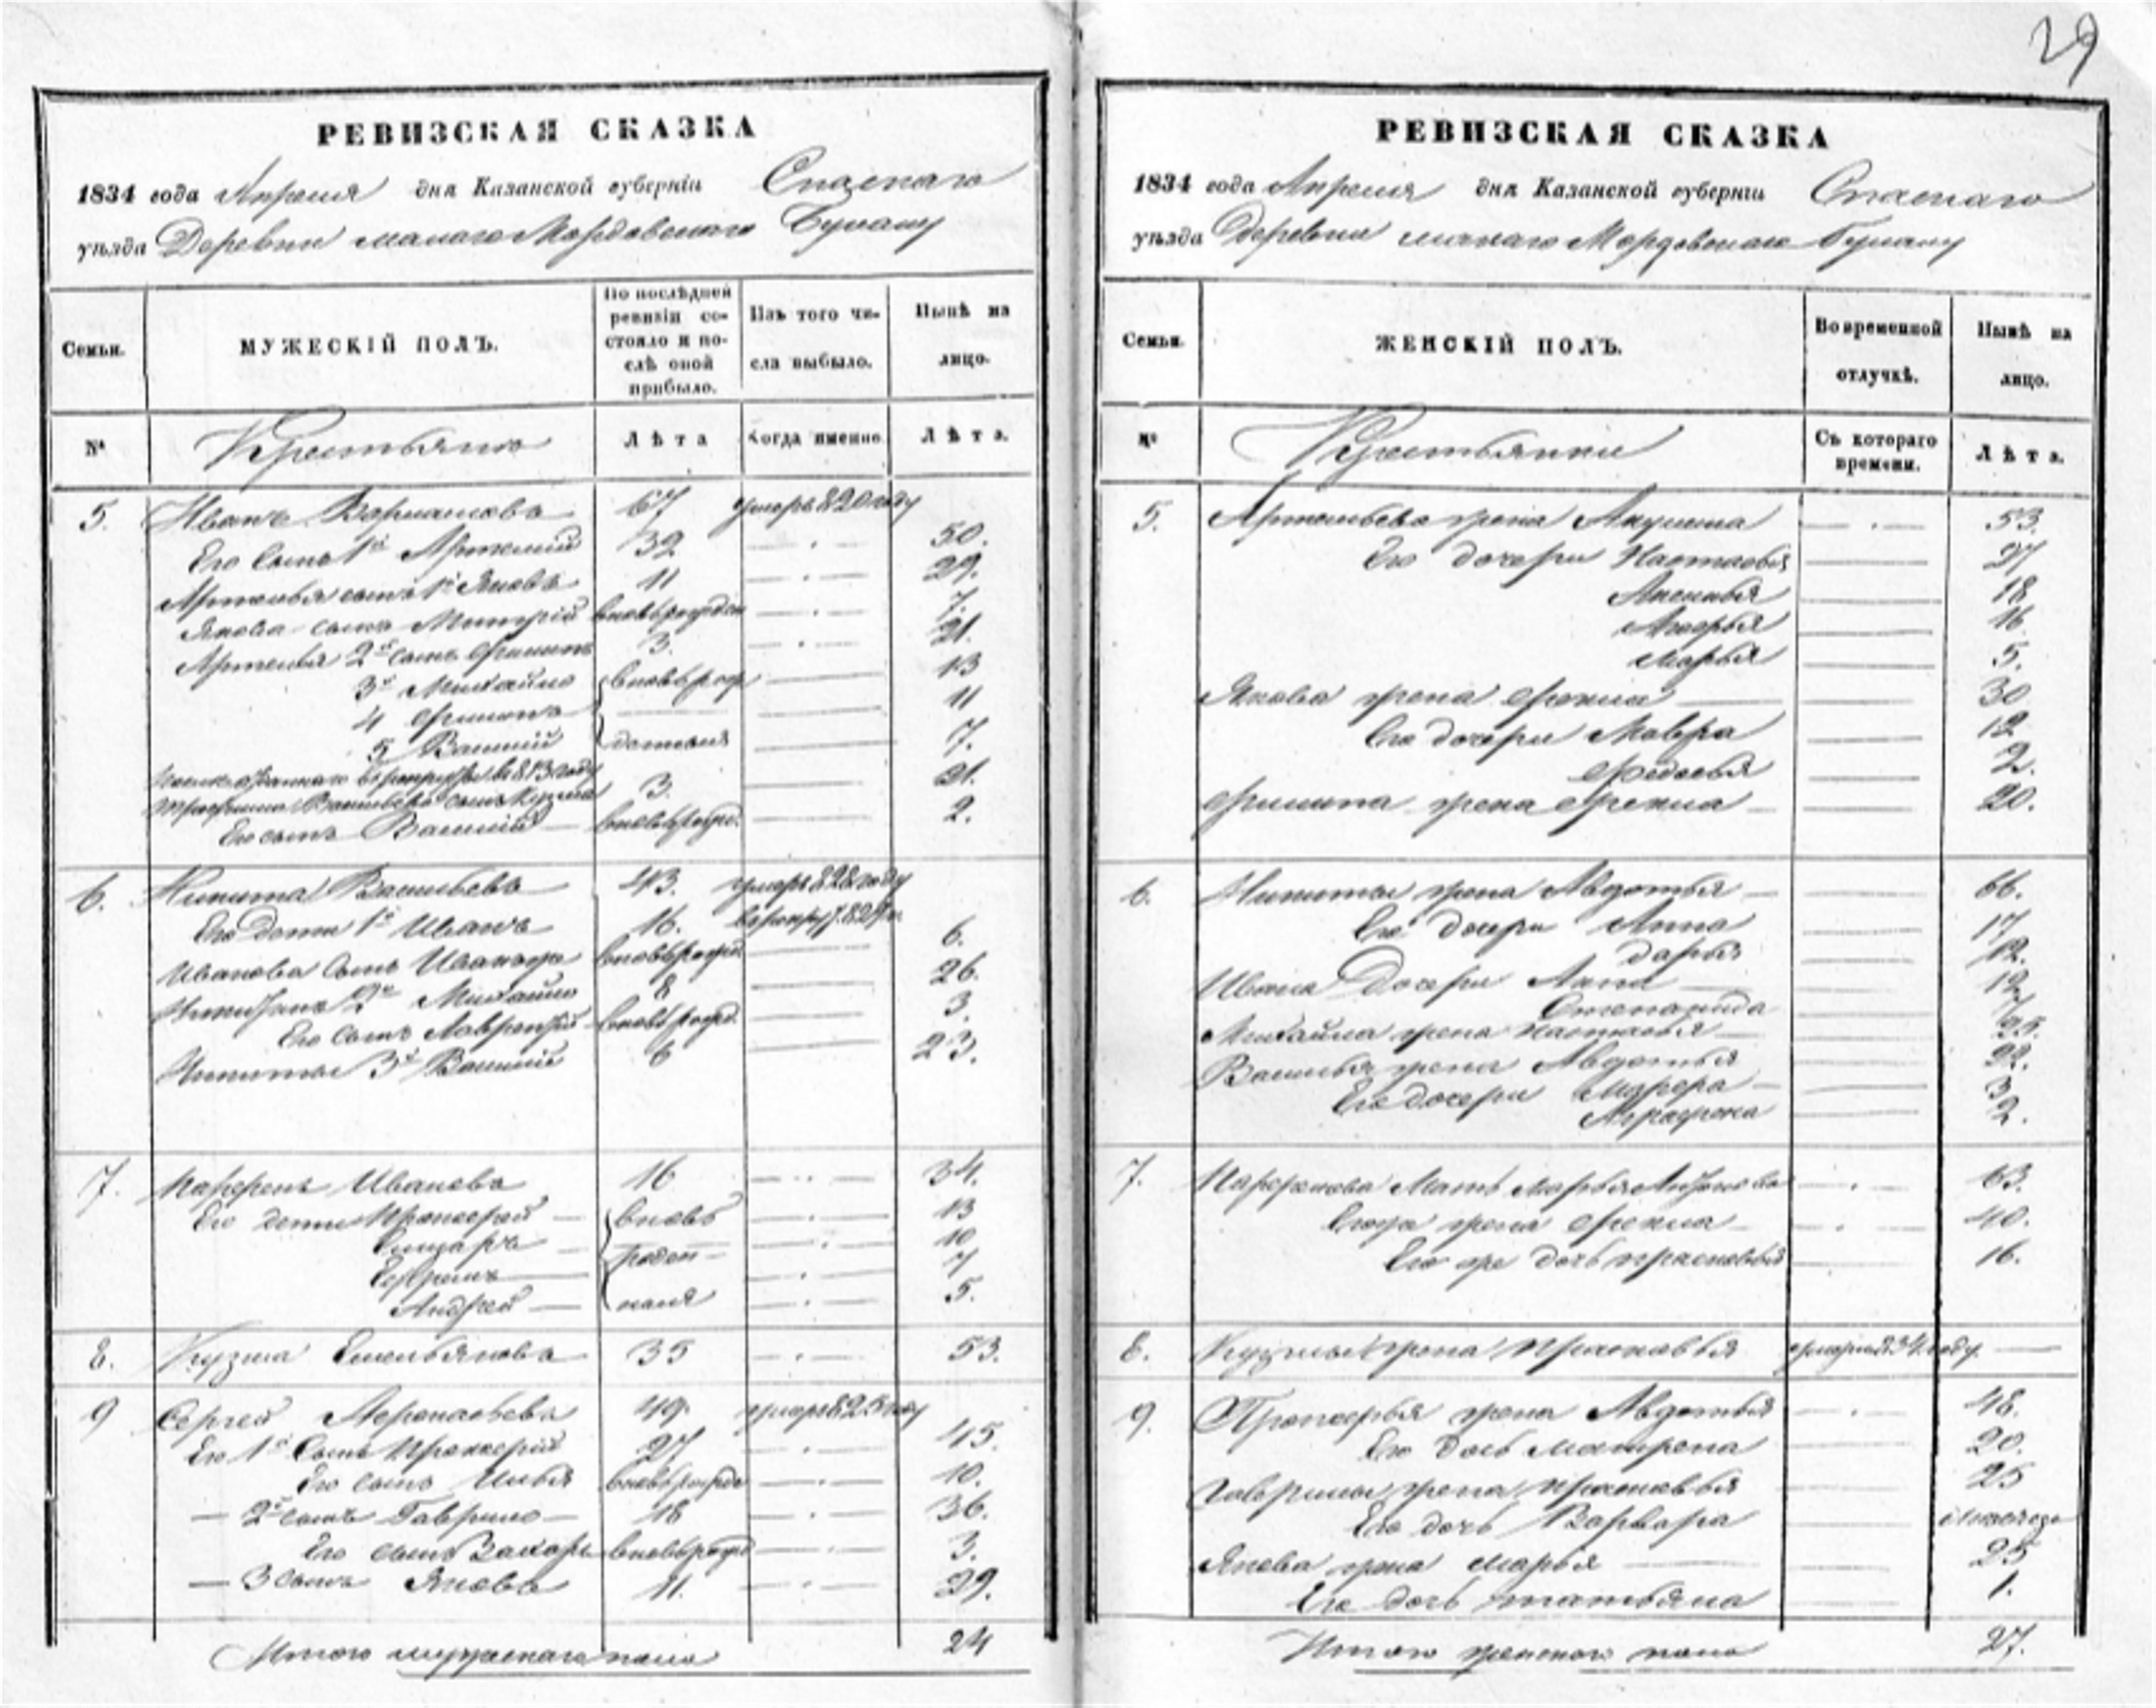 29
РЕВИЗСКАЯ СКАЗКА
1834 года Апреля дня Казанской губернiи Спаскаго
уѣзда Деревни малаго Мордовскаго
Семьи.
МУЖЕСКIЙ ПОЛЪ.
По послѣдней ревизiи со-
стояло и по-
слѣ оной
прибыло.
Изъ того чи-
сла выбыло.
Нынѣ на
лицо.
№
Крестьяне
Лѣта
Когда именно.
Лѣта.
5. Иванъ Варламовъ 67 умеръ 820 году
Его сынъ 1й Артемий 32 50.
Артемья сынъ 1й Яковъ 11 29.
Якова сынъ Митрiй вновьрожден 7.
Артемья 2й сынъ Филипъ 3. 21.
3й Михайло вновьрож 13
4 11
5 Василiй 7.
в 813 году
сынъ Кузма 3. 21.
Его сынъ Василiй вновьрожд. 2.
6. Никита Васильевъ 43. умеръ 828 году
Его дети 1й Иванъ 16.
Иванова сынъ вновьрожд 6.
2й Михайло 8 26.
Его сынъ Лаврентiй вновьрожд. 3.
Никиты 3й Василiй 6 23.
7. Парфенъ Ивановъ 16 34.
Его дети Прокофей вновь 13
10
Ефремъ 7
Андрей 5.
8. Кузма Емельяновъ 35 53.
9 Сергей Афонасьевъ 49. умеръ 825 году
Его 1й сынъ Прокофiй 27 45.
Его сынъ Илья вновьрожде 10.
2й сынъ Гаврило 18 36.
Его сынъ Захаръ вновьрожд 3.
3 сынъ Яковъ 11. 29.
Итого мужескаго пола 24
РЕВИЗСКАЯ СКАЗКА
1834 года Апреля дня Казанской губернiи Спаскаго
уѣзда Деревни малаго Мордовскаго
Семьи.
ЖЕНСКIЙ ПОЛЪ.
Во временной
отлучкѣ.
Нынѣ на
лицо.
№
Крестьянки
Съ котораго
времени.
Лѣта.
5. Артемьева жена Акулина 53.
Его дочери Настасья 27
Аксинья 18
16
Марья 5.
Якова жена Фекла 30
Его дочери Мавра 12
Федосья 2.
Филипа жена Фекла 20.
6. Никиты жена Авдотья 66.
Его дочери Анна 17
Дарья 12.
Ивана дочери Анна 12
Степанида 7
Михайла жена Настасья 25.
Василья жена Авдотья 22.
Его дочери 3
Аграфена 2.
7. Парфенова мать Марья Антонова 63.
Егоже жена Фекла 40.
Его же дочь Прасковья 16.
8. Кузмы жена Прасковья умерла 834 году
9. Прокофья жена Авдотья 48.
Его дочь Матрена 20.
Гаврилы жена Прасковья 25
Его дочь Варвара
Якова жена Марья 25
Его дочь Татьяна 1.
Итого женскаго пола 27.